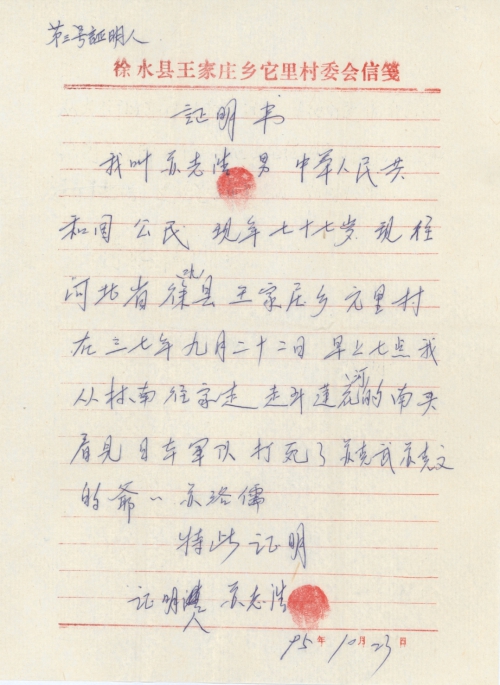 第三号証明人
徐水县王家庄乡它里村委会信笺
証明书
我叫苏志浩 男 中华人民共
和国 公民 现年七十七岁 现住
河北省徐水县 王家庄乡 它里村
在三七年九月二十二日 早上七点我
从村南往家走 走到莲花河的南头
看见 日本军队 打死了 苏克武苏克文
的爷〃 苏洛儒
特此 证明
证明人 苏志浩
95年10月23日